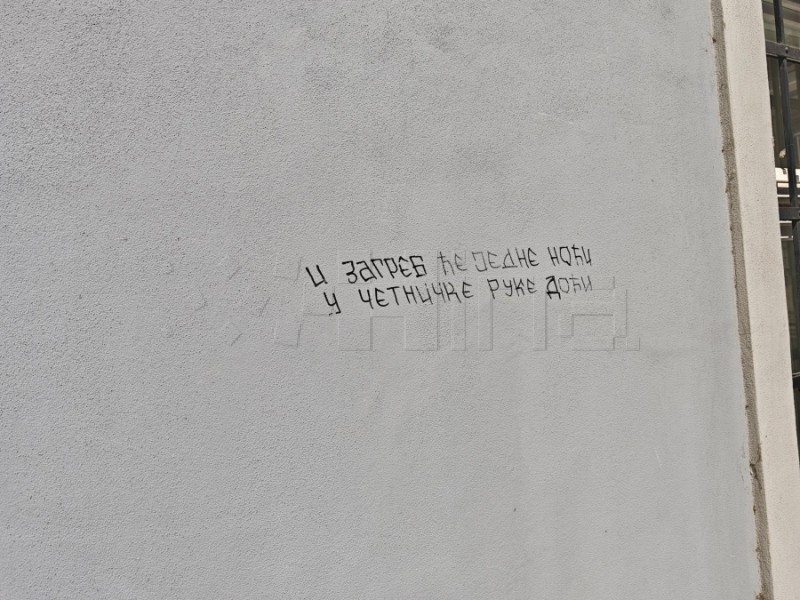 И ЗАГРЕБ ЋЕ ЈЕДНЕ НОЋИ
У ЧЕТНИЧКЕ РУКЕ ДОЋИ
Hina.